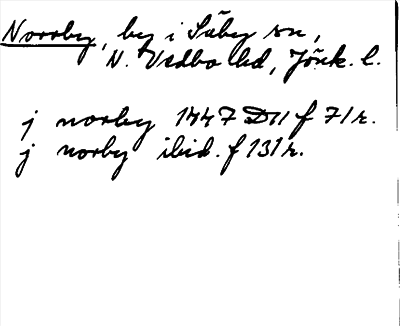 Norrby, by i Säby sn,
N. Vedbo hd, Jönk. l.
j norby 1447 D11 f 71r.
j norby ibid. f 131r.